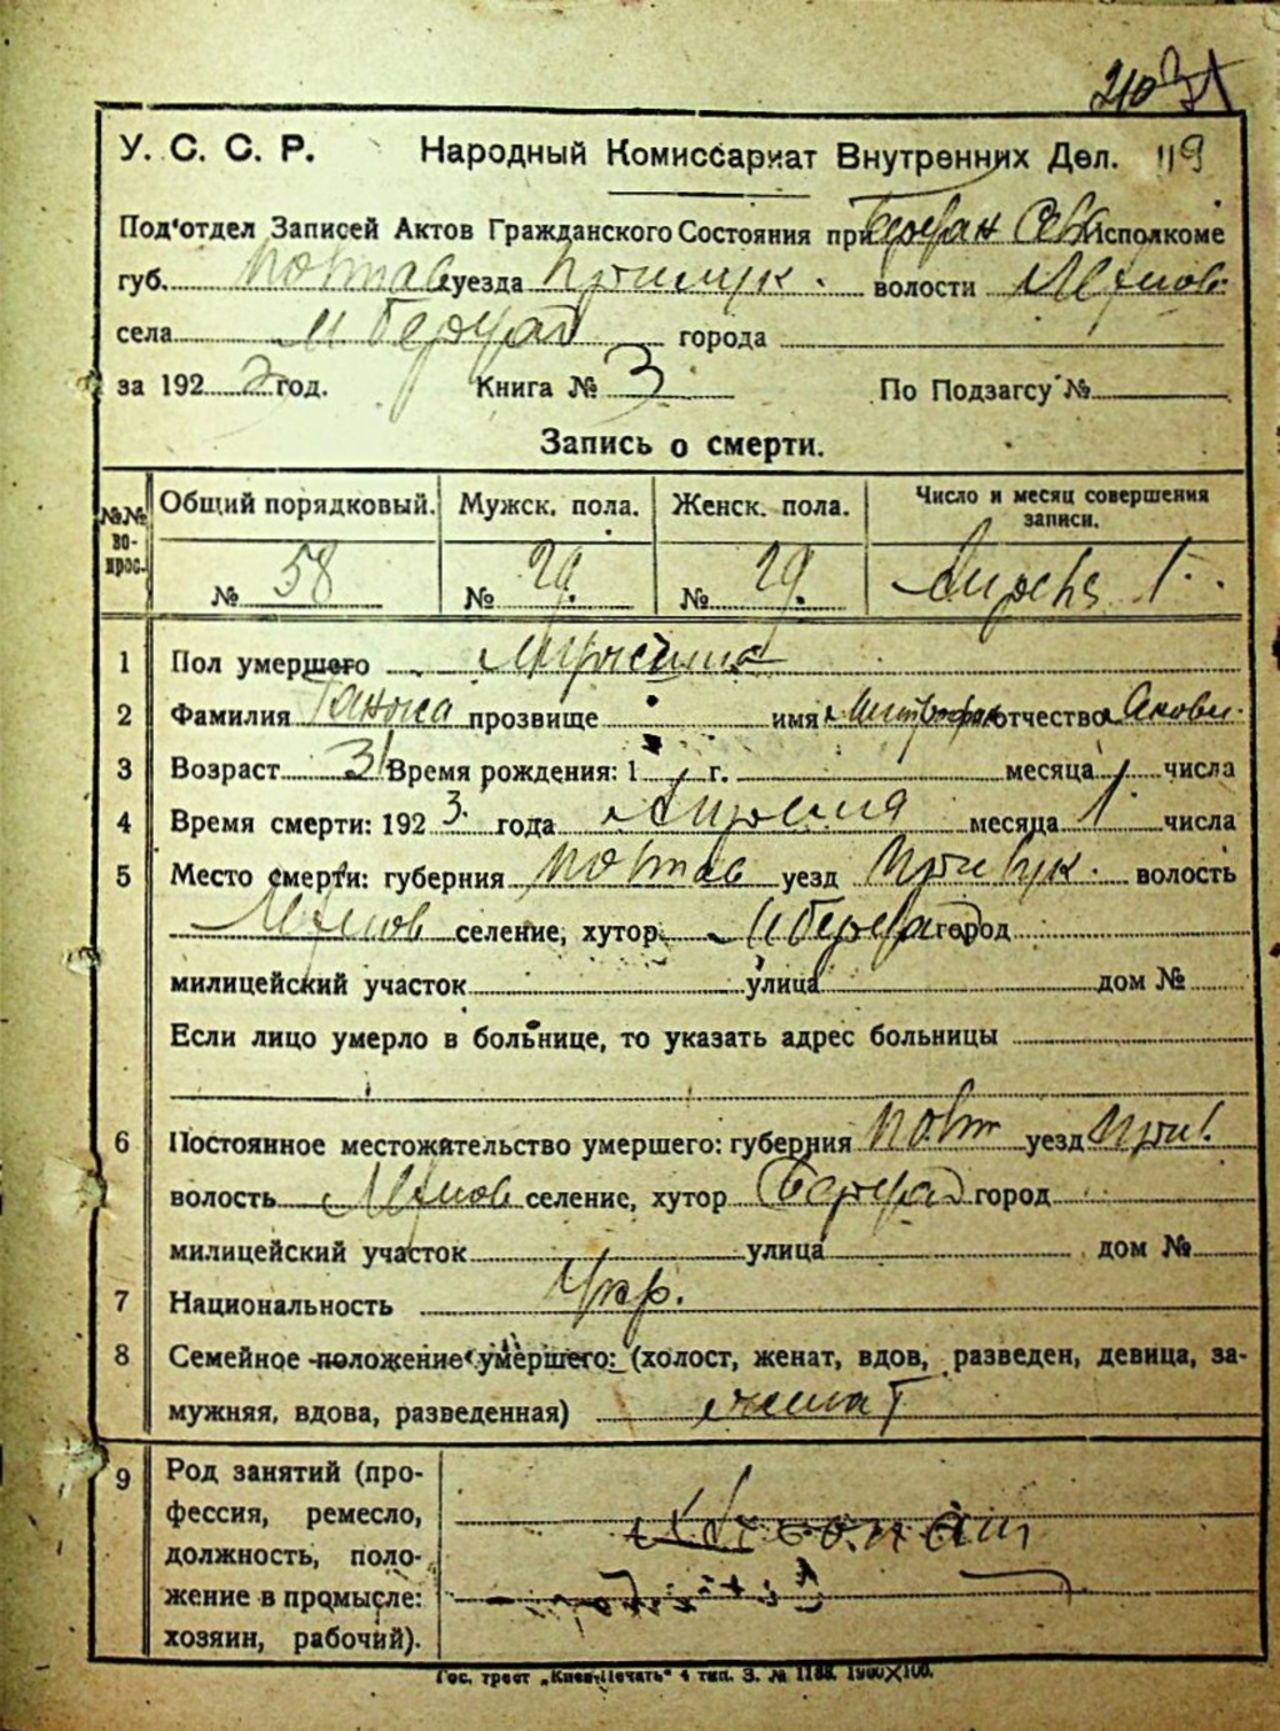 210 31
У. С. С. Р. Народный Комиссариат Внутренних Дел. 119
Под'отдел Записей Актов Гражданского Состояния при Исполкоме
губ. Полтав уезда Прилук. волости
села м города
за 192 2 год. Книга № 3 По Подзагсу №
Запись о смерти.
№№ вопрос. Общий порядковый. Мужск. пола. Женск. пола. Число и месяц совершения записи.
№ 58 № 29. № 29. Апрель 1.
1 Пол умершего Мужчина
2 Фамилия прозвище имя Митрофан отчество Акови.
3 Возраст 31 Время рождения: 1 г. месяца числа
4 Время смерти: 192 3. года Апреля месяца 1. числа
5 Место смерти: губерния Полтав уезд Прилук. волость
селение, хутор м город
милицейский участок улица дом №
Если лицо умерло в больнице, то указать адрес больницы
6 Постоянное местожительство умершего: губерния Полт уезд Прил.
волость селение, хутор город
милицейский участок улица дом №
7 Национальность Укр.
8 Семейное положение умершего: (холост, женат, вдов, разведен, девица, за-
мужняя, вдова, разведенная) женат
9 Род занятий (про-
фессия, ремесло,
должность, поло-
жение в промысле:
хозяин, рабочий).
Гос. трест „Киев-Печать" 4 тип. З. № 1188. 1900×100.